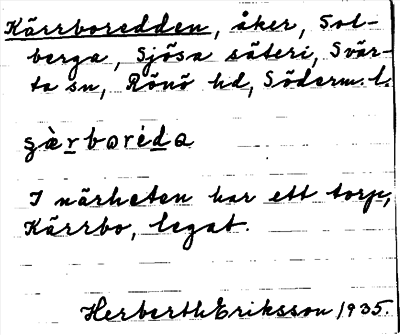 Kärrboredden, åker, Sol-
berga, Sjösa säteri, Svär-
ta sn, Rönö hd, Söderm. l.
I närheten har ett torp,
Kärrbo, legat.
Herberth Eriksson 1935.